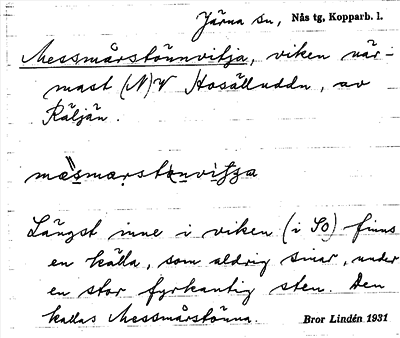 Järna sn, Nås tg, Kopparb. l.
Messmårstöunvitja, viken när-
mast (N)V Hosälluddn, av
Räljän.
Längst inne i viken (i SO) finns
en källa, som aldrig sinar, under
en stor fyrkantig sten. Den
kallas Messmårstöunna.
Bror Lindén 1931